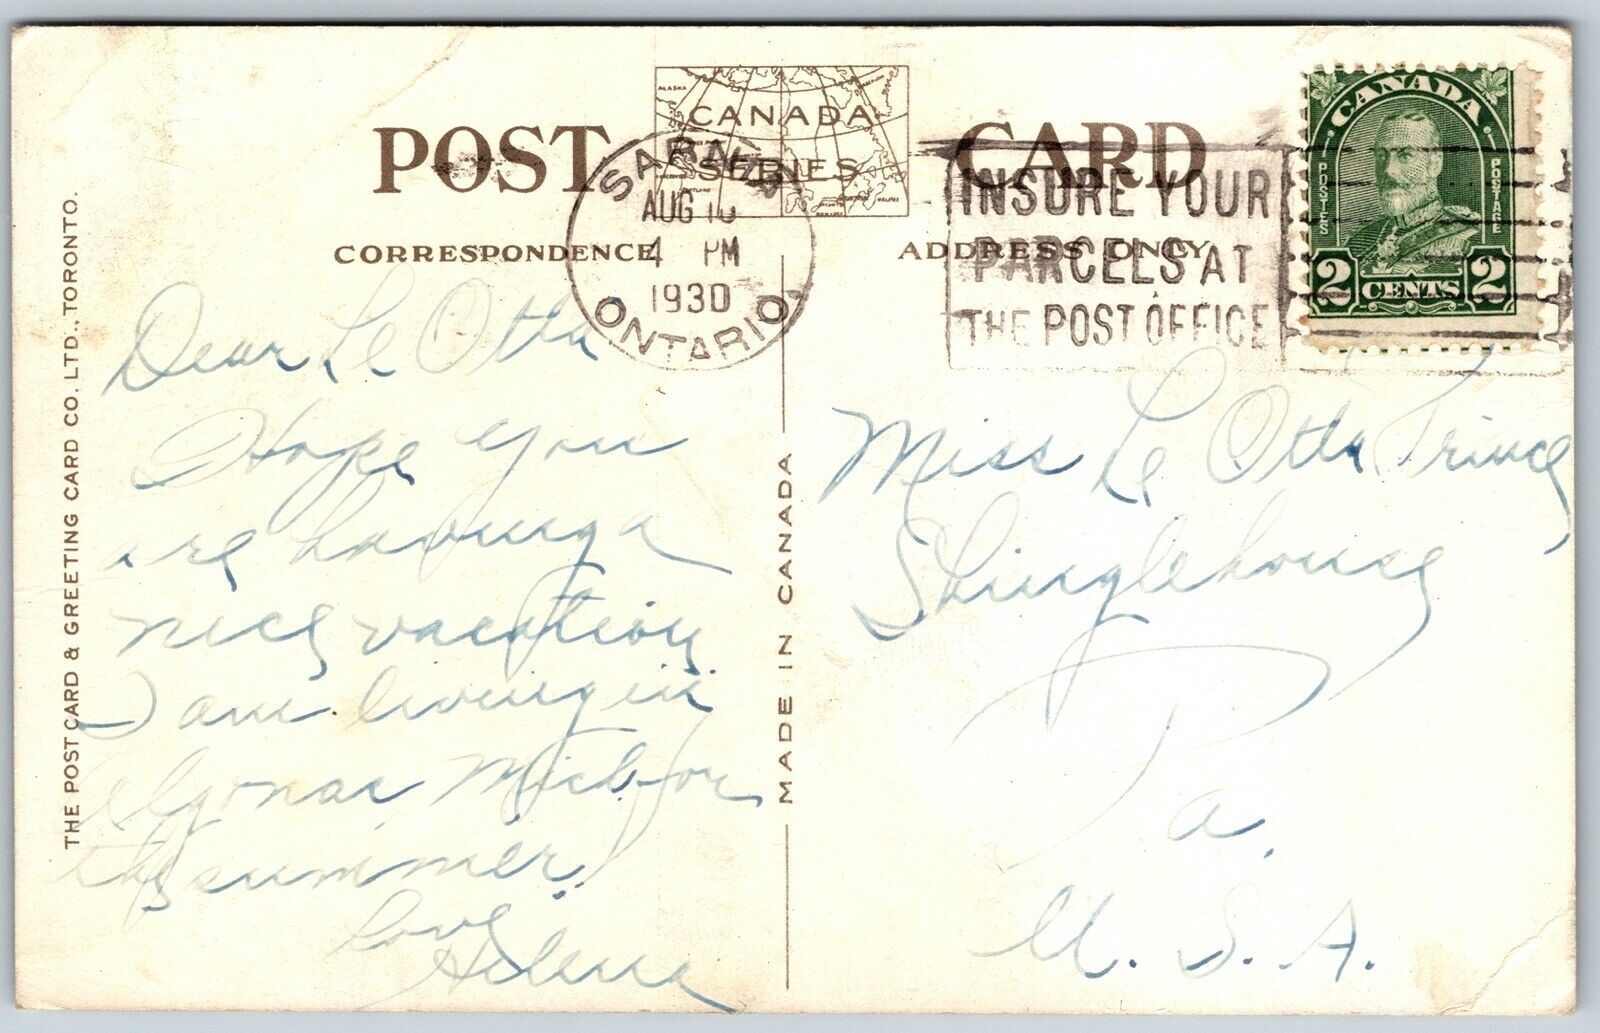 POST CARD
CANADA
SERIES
CORRESPONDENCE
ADDRESS ONLY
SARNIA
AUG
4 PM
1930
ONTARIO
INSURE YOUR
PARCELS AT
THE POST OFFICE
CANADA
POSTES
POSTAGE
2 CENTS 2
THE POST CARD & GREETING CARD CO. LTD., TORONTO.
MADE IN CANADA
Dear Le Otta
Hope you
are having a
nice vacation
I am living in
Algonac Mich. for
the summer.
Love
Helena
Miss Le Otta Prince
Shinglehouse
Pa.
U.S.A.